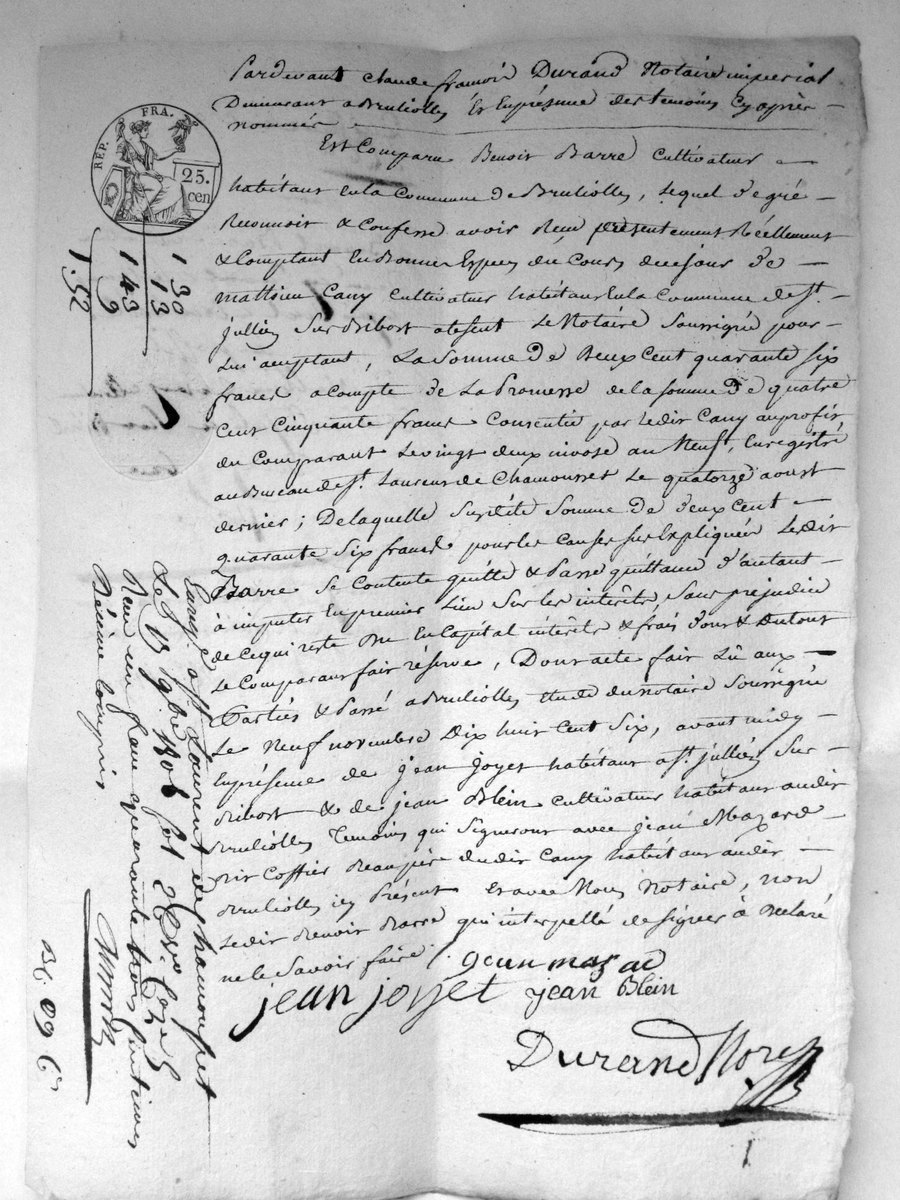 Pardevant claude francois Durand Notaire imperial
Demeurant a Brulliolles Et En présence des temoins Cy après
nommés
Est Comparu Benoit Barre Cultivateur
habitant en la Commune de Brulliolles, lequel de gré
Reconnoit & Confesse avoir Recu présentement Réellement
& Comptant En Bonnes Especes du Cours de ce jour de
mathieu Cany Cultivateur habitant En la Commune de St.
jullien Sur Bibost absent Le Notaire Soussigné pour
Lui acceptant, La Somme de Deux Cent quarante six
francs acompte de La Promesse de la somme De quatre
Cent Cinquante francs Consentie par ledit Cany au profit
du Comparant Le vingt deux nivose an Neuf, Enregistré
au Bureau de St. Laurent de Chamousset Le quatorze aoust
dernier; De laquelle Susdite Somme de deux Cent
Quarante Six francs pour les Causes sus Expliquées Ledit
Barre Se Contente quitte & Passe quittance d'autant
à imputer En premier Lieu Sur les intérêts, Sans prejudice
de Ce qui reste Du En Capital intérêts & frais Dont & Du tout
Le Comparant fait réserve, Dont acte fait Lû aux
Parties & Passé a Brulliolles Etude du notaire Soussigné
Le Neuf novembre Dix huit Cent Six, avant midy
En présence de jean joyet habitant a St. jullien Sur
Bibost & de jean Blein Cultivateur habitant audit
Brulliolles Temoins qui Signeront avec jean Mazard
Beaupère dudit Cany habitant audit
Brulliolles icy Présent Et avec Nous Notaire, non
Ledit Benoit Barre qui interpellé de signer à Déclaré
ne le Savoir faire.
jean mazard
jean joyet jean Blein
Durand Nore
REP. FRA.
25.
cen
1 30
13
143
9
1.52
Enreg. a St. Laurent de chamousset
Le 9bre 1806 fol
Recu un franc quarante trois centimes
Decime compris